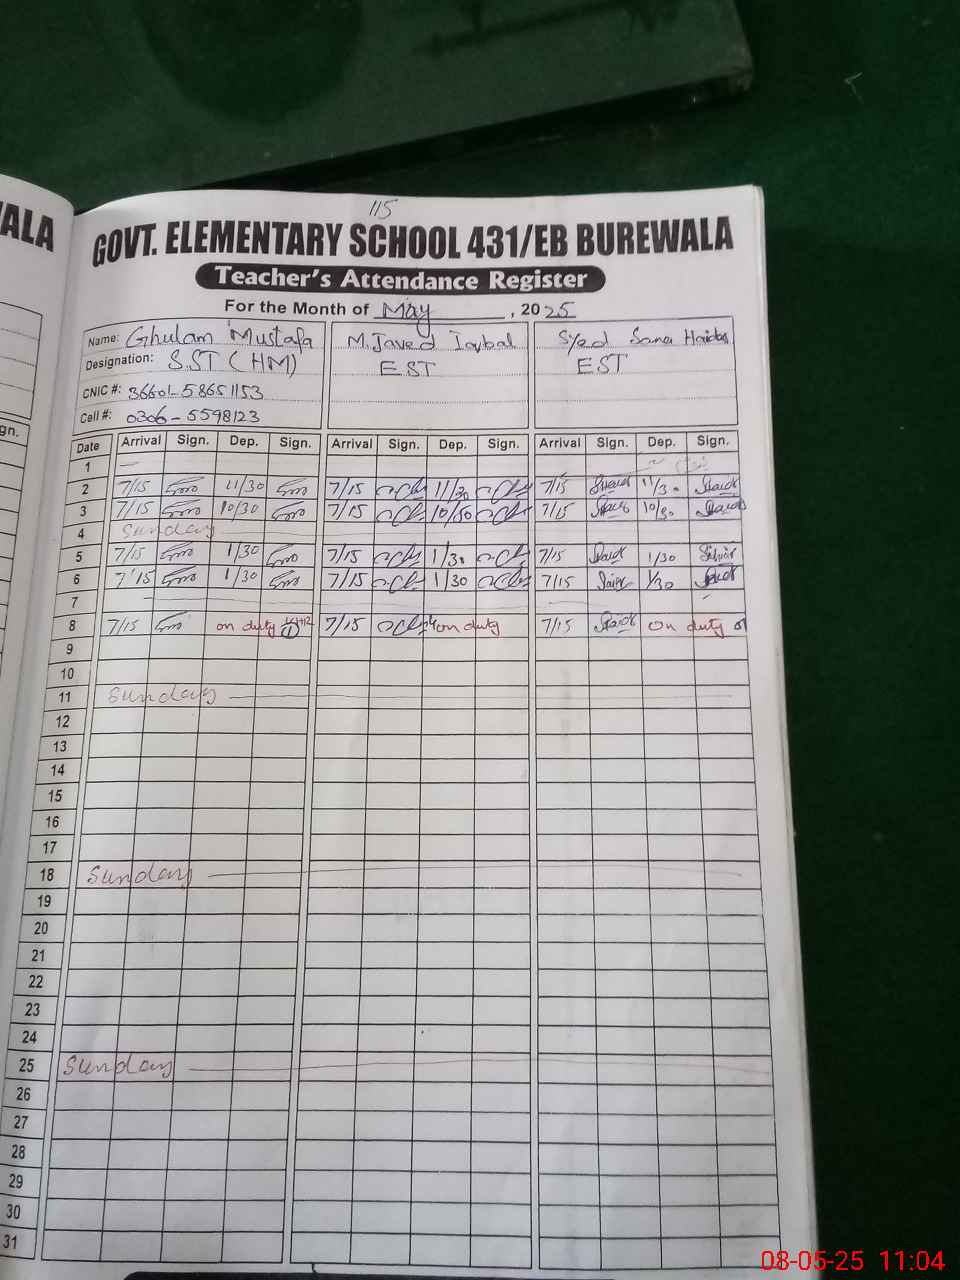 ALA
115
GOVT. ELEMENTARY SCHOOL 431/EB BUREWALA
Teacher's Attendance Register
For the Month of May, 2025
Name: Ghulam Mustafa M. Javed Iqbal Syed Sana Haider
Designation: S.ST (HM) EST EST
CNIC #: 36601-58651153
Cell #: 0306-5598123
gn.
Date Arrival Sign. Dep. Sign. Arrival Sign. Dep. Sign. Arrival Sign. Dep. Sign.
1 —
2 7/15 11/30 7/15 11/30 7/15 11/30
3 7/15 10/30 7/15 10/30 7/15 10/30
4 Sunday
5 7/15 1/30 7/15 1/30 7/15 1/30
6 7/15 1/30 7/15 1/30 7/15 1/30
7
8 7/15 on duty 7/15 on duty 7/15 on duty
9
10
11 Sunday
12
13
14
15
16
17
18 Sunday
19
20
21
22
23
24
25 Sunday
26
27
28
29
30
31
08-05-25 11:04